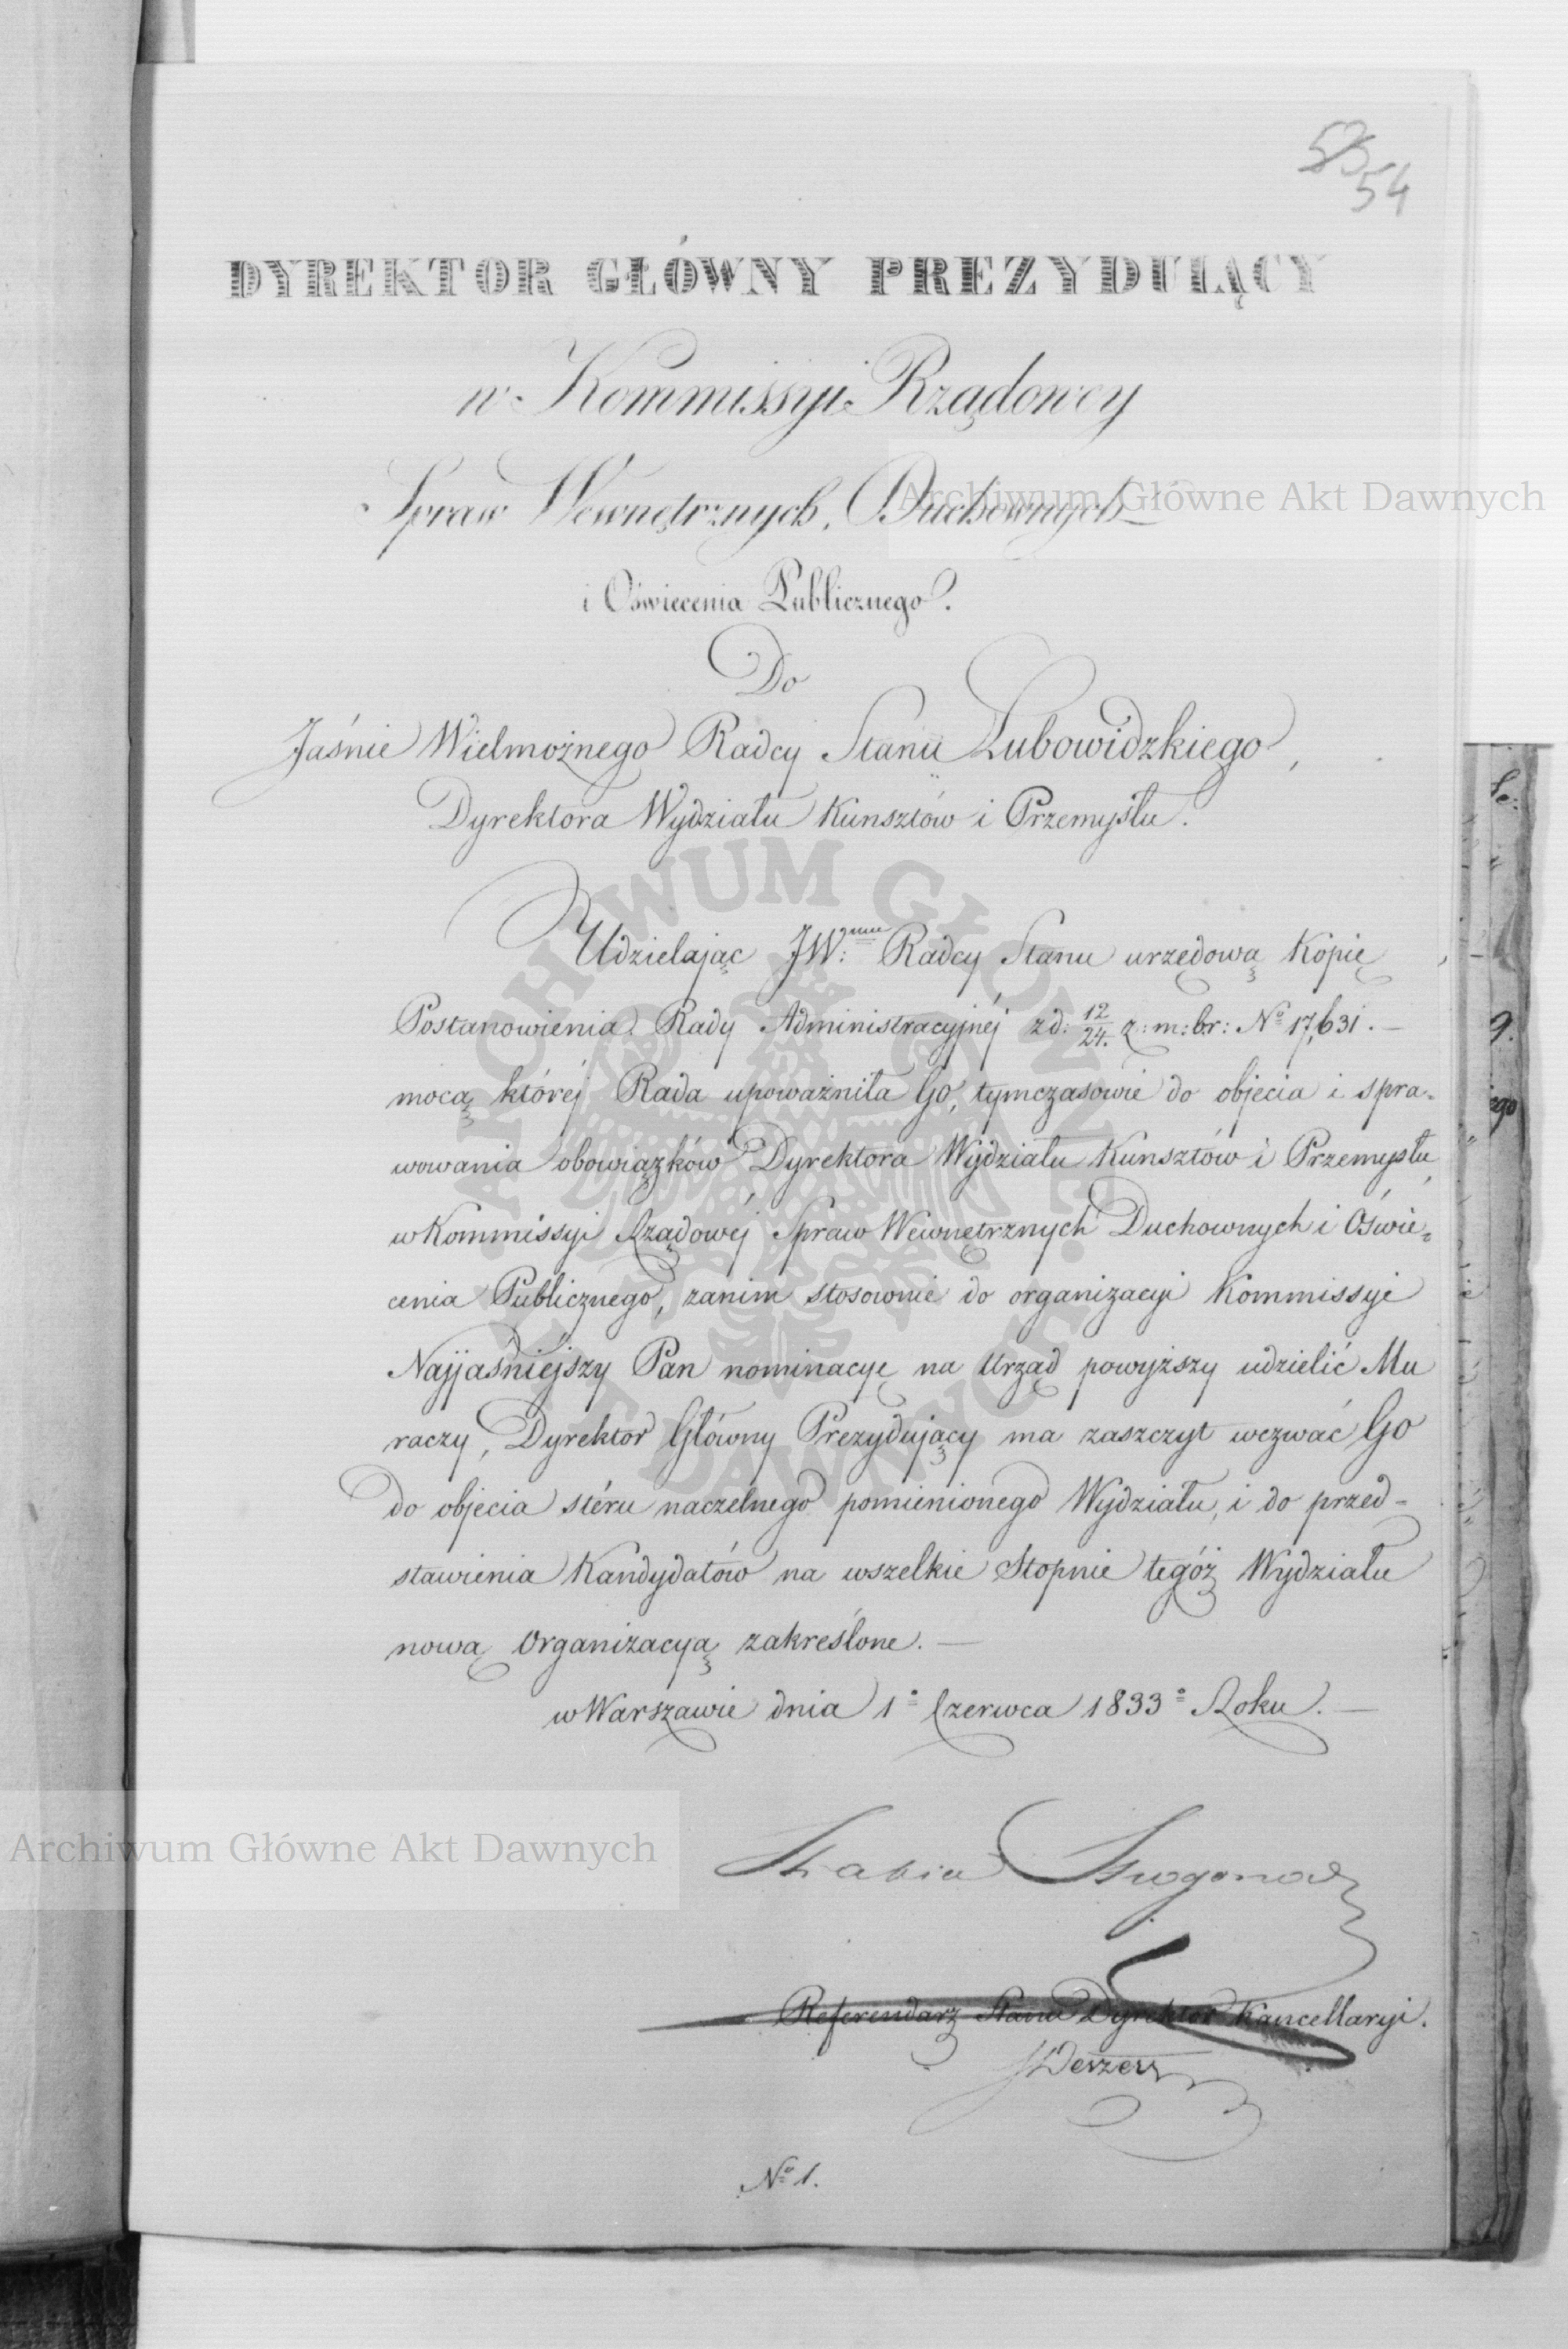 53
54
DYREKTOR GŁÓWNY PREZYDUIĄCY
w Kommissyi Rządowey
Spraw Wewnętrznych, Duchownych
i Oświecenia Publicznego.
Do
Jaśnie Wielmożnego Radcy Stanu Lubowidzkiego,
Dyrektora Wydziału Kunsztów i Przemysłu.
Udzielając JW: Radcy Stanu urzędową Kopię
Postanowienia Rady Administracyjnéj z d: 12/24. z: m: br: No 17,631. —
mocą któréj Rada upoważniła Go, tymczasowie do objęcia i spra=
wowania obowiązków Dyrektora Wydziału Kunsztów i Przemysłu,
w Kommissyi Rządowéj Spraw Wewnętrznych Duchownych i Oświe=
cenia Publicznego, zanim stosownie do organizacyi Kommissyi
Najjaśniejszy Pan nominacyę na Urząd powyższy udzielić Mu
raczy, Dyrektor Główny Prezydujący ma zaszczyt wezwać Go
do objęcia stéru naczelnego pomienionego Wydziału, i do przed=
stawienia Kandydatów na wszelkie Stopnie tegóż Wydziału
nową Organizacyą zakreślone. —
w Warszawie dnia 1o Czerwca 1833o Roku. —
Hrabia Strogonow
Referendarz Stanu Dyrektor Kancellaryi.
No 1.
Archiwum Główne Akt Dawnych
Archiwum Główne Akt Dawnych
ARCHIWUM GŁÓWNE
AKT DAWNYCH